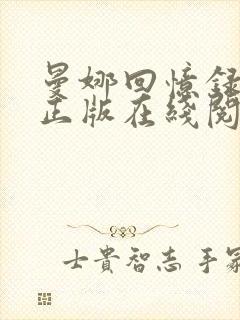 曼娜回憶録
正版在綫閱
士貴智志 手冢